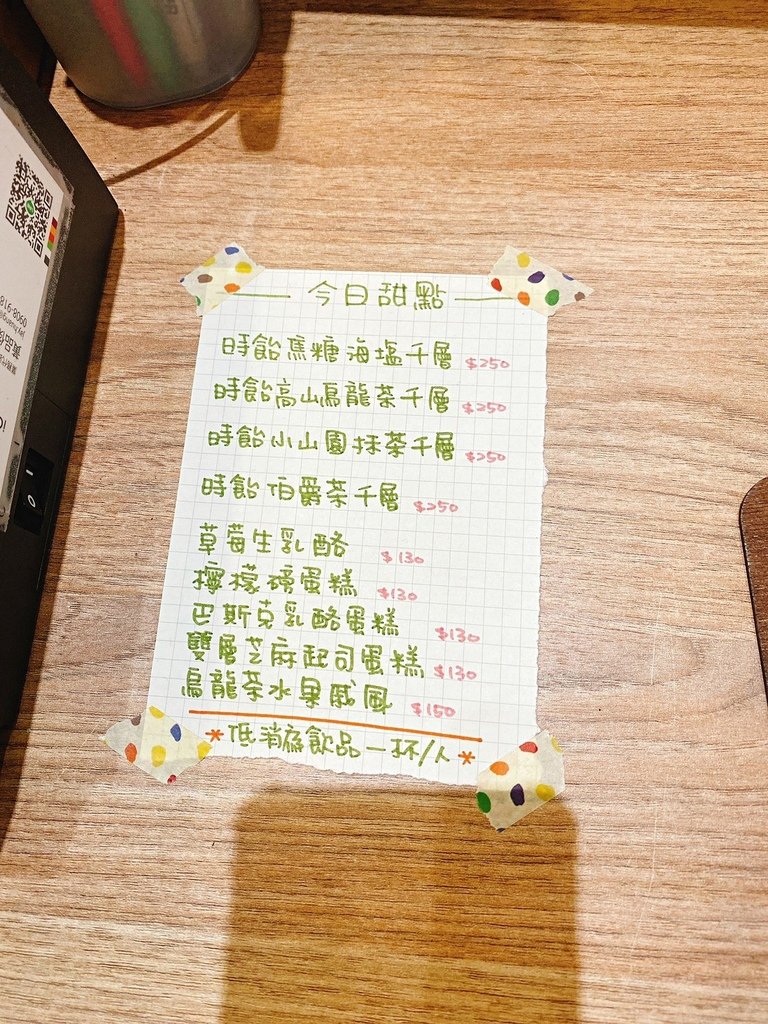 今日甜點
時飴焦糖海塩千層 $250
時飴高山烏龍茶千層 $250
時飴小山園抹茶千層 $250
時飴伯爵茶千層 $250
草莓生乳酪 $130
檸檬磅蛋糕 $130
巴斯克乳酪蛋糕 $130
雙層芝麻起司蛋糕 $130
烏龍茶水果戚風 $150
*低消為飲品一杯/人*